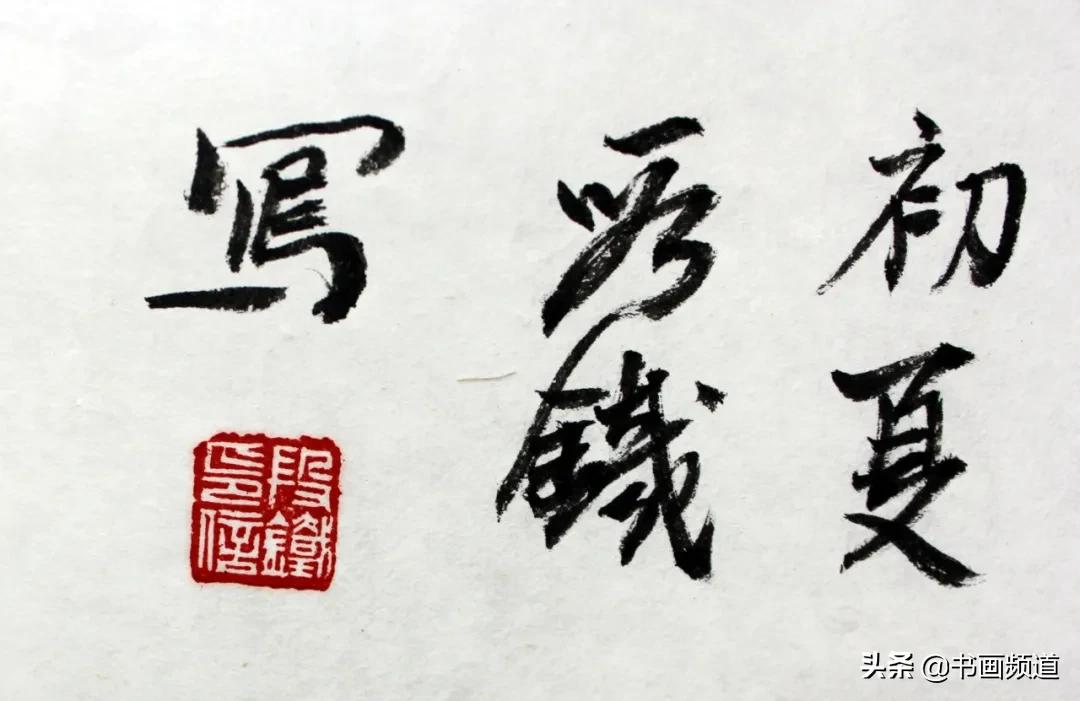 初夏
段鐵
寫
段鐵
印信
头条 @书画频道